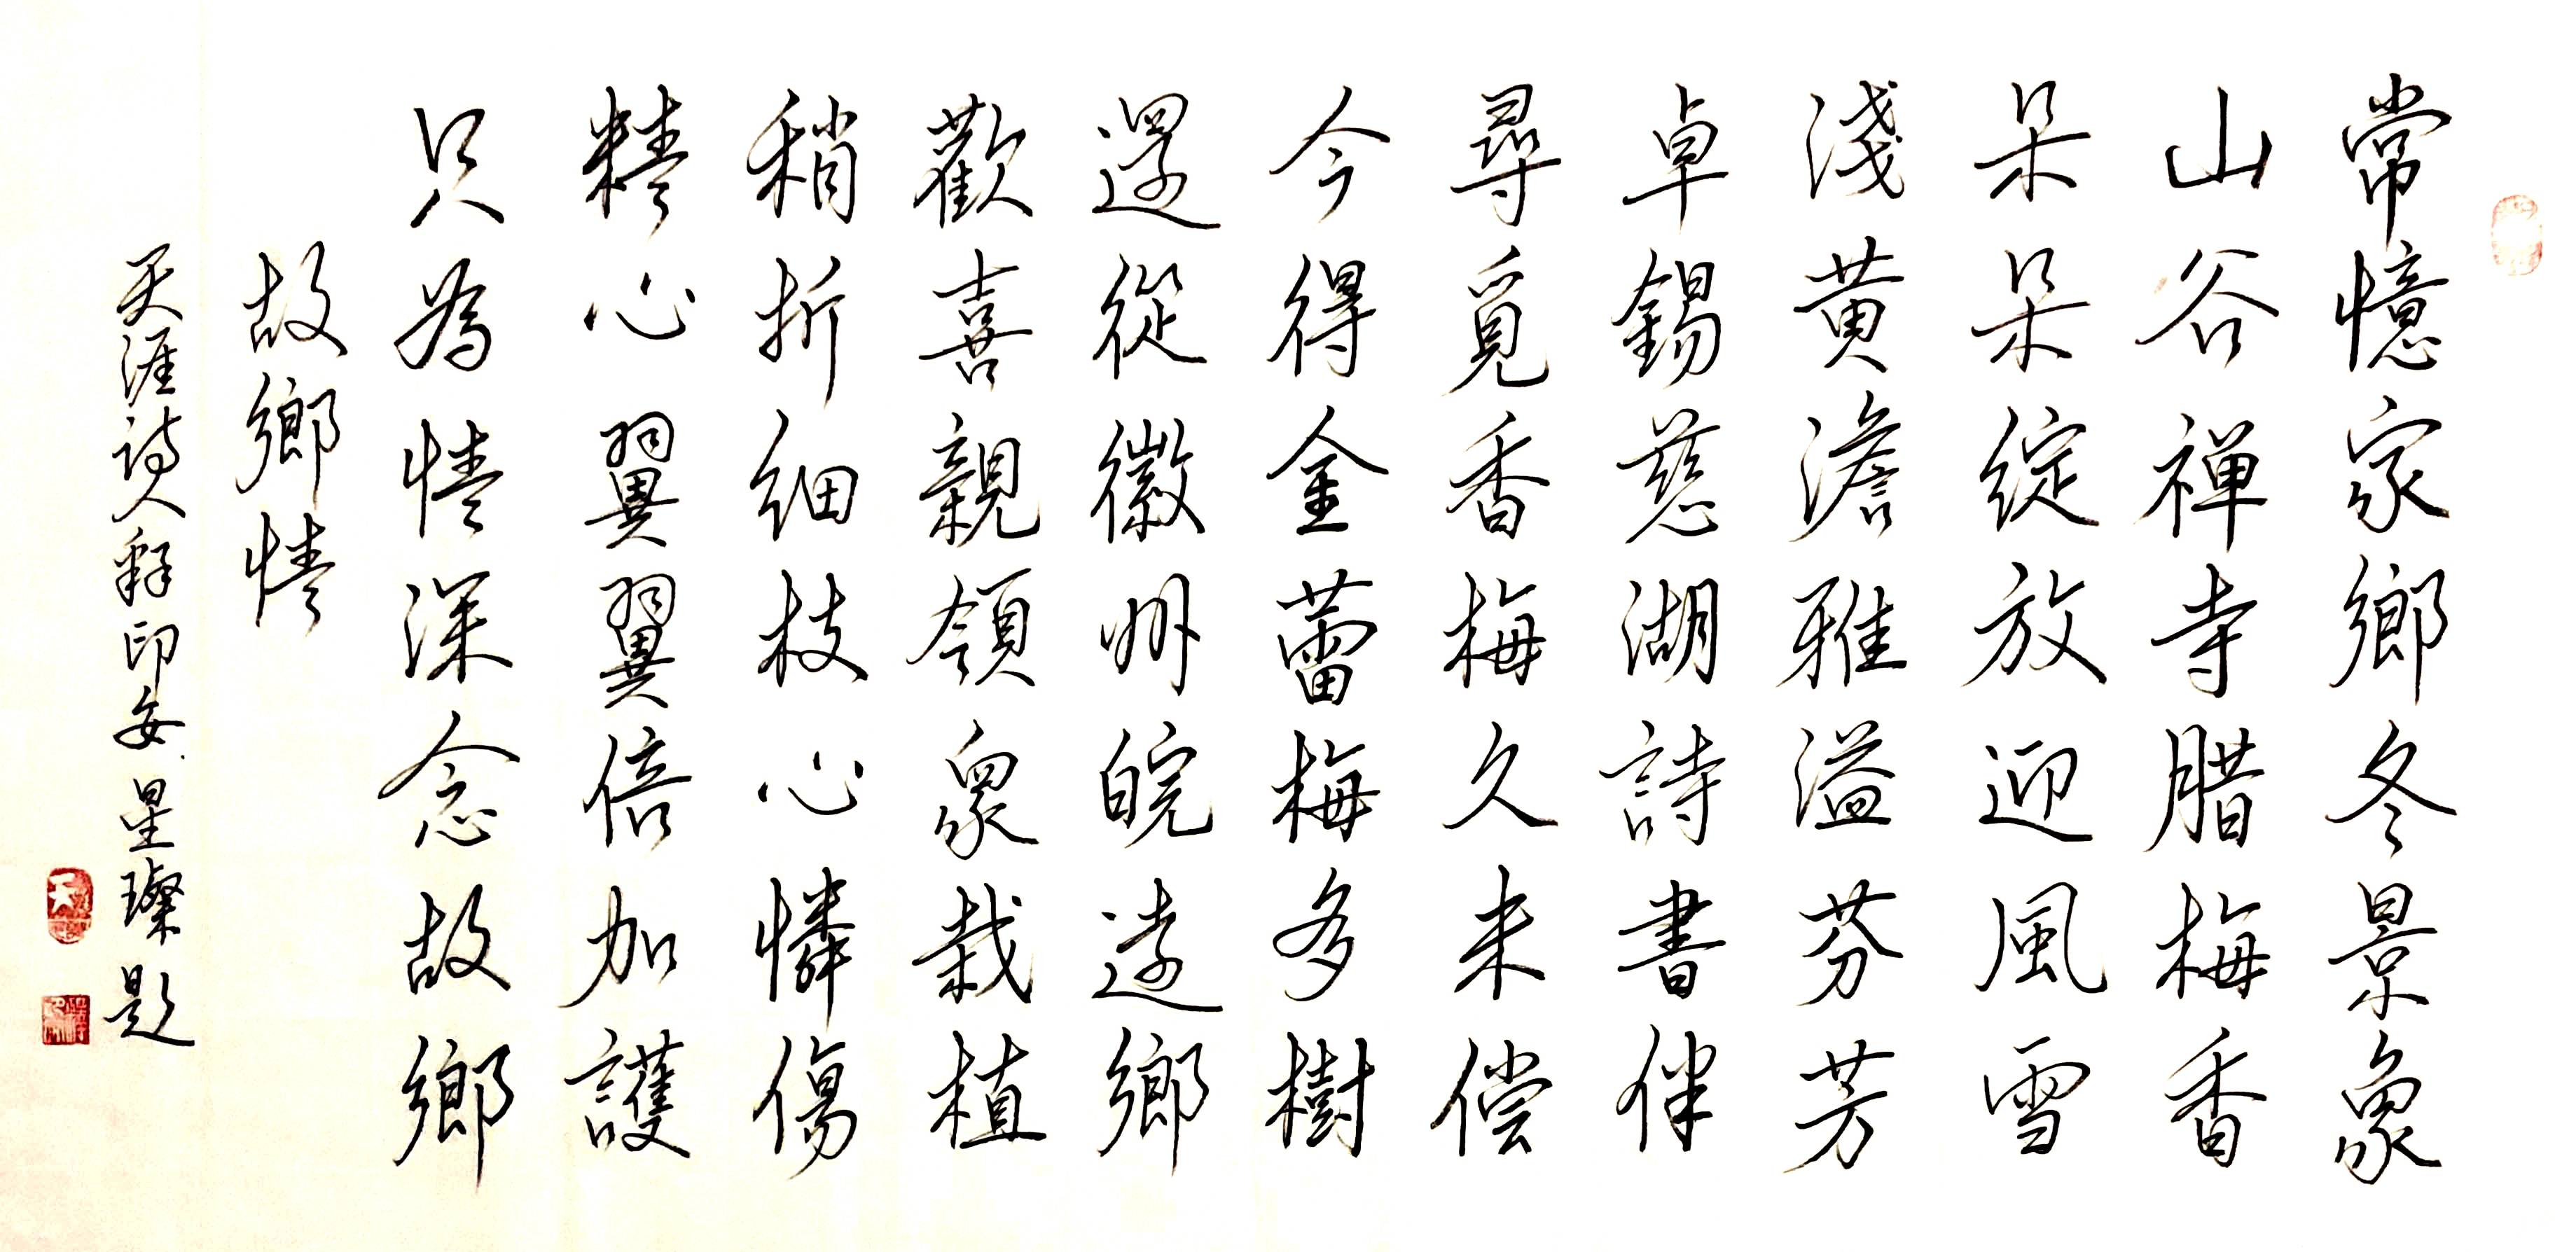 常憶家鄉冬景象
山谷禅寺腊梅香
朵朵绽放迎風雪
淺黄澹雅溢芬芳
卓錫慈湖詩書伴
尋覓香梅久未偿
今得金蕾梅多樹
還從徽州皖遠鄉
歡喜親領眾栽植
稍折细枝心憐傷
精心翼翼倍加護
只為情深念故鄉
故鄉情
天涯詩人釋印安星璨题